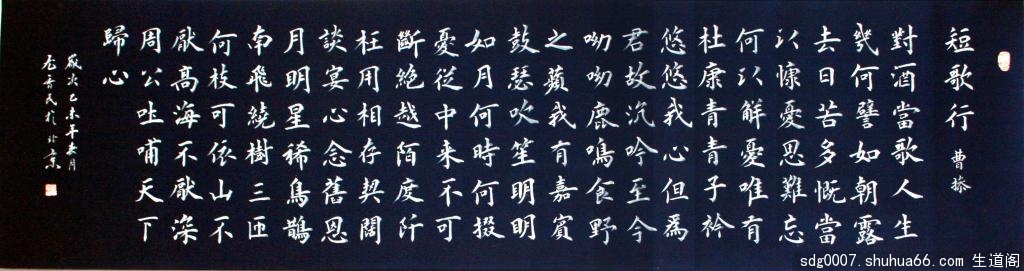 短歌行 曹操
對酒當歌人生
幾何譬如朝露
去日苦多慨當
以慷憂思難忘
何以解憂唯有
杜康青青子衿
悠悠我心但為
君故沉吟至今
呦呦鹿鳴食野
之蘋我有嘉賓
鼓瑟吹笙明明
如月何時何掇
憂從中来不可
斷絶越陌度阡
枉用相存契闊
談宴心念舊恩
月明星稀烏鵲
南飛繞樹三匝
何枝可依山不
厭高海不厭深
周公吐哺天下
歸心
歲次乙未年月
民於北京
sdg0007.shuhua66.com 生道阁